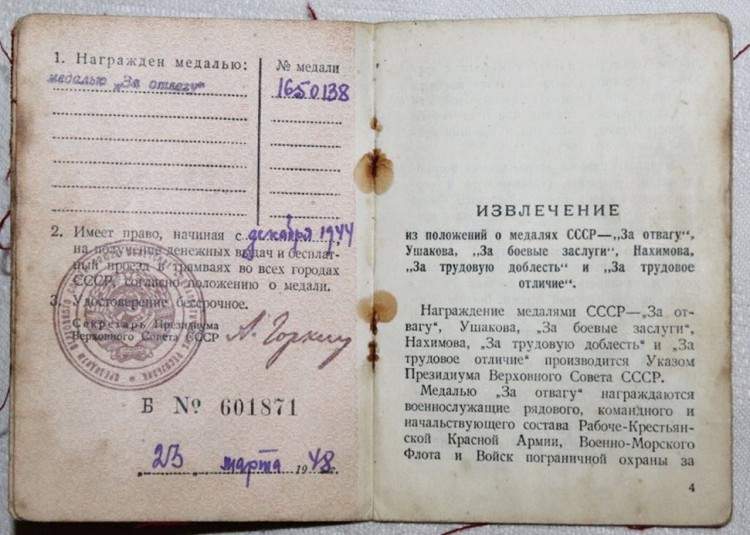 1. Награжден медалью:
№ медали
медалью „За отвагу“
1650138
2. Имеет право, начиная с декабря 1944
на получение денежных выдач и бесплат-
ный проезд в трамваях во всех городах
СССР, согласно положению о медали.
3. Удостоверение бессрочное.
Секретарь Президиума
Верховного Совета СССР
А. Горкин
Б № 601871
23 марта 1948
ИЗВЛЕЧЕНИЕ
из положений о медалях СССР—„За отвагу“,
Ушакова, „За боевые заслуги“, Нахимова,
„За трудовую доблесть“ и „За трудовое
отличие“.
Награждение медалями СССР—„За от-
вагу“, Ушакова, „За боевые заслуги“,
Нахимова, „За трудовую доблесть“ и „За
трудовое отличие“ производится Указом
Президиума Верховного Совета СССР.
Медалью „За отвагу“ награждаются
военнослужащие рядового, командного и
начальствующего состава Рабоче-Крестьян-
ской Красной Армии, Военно-Морского
Флота и Войск пограничной охраны за
4